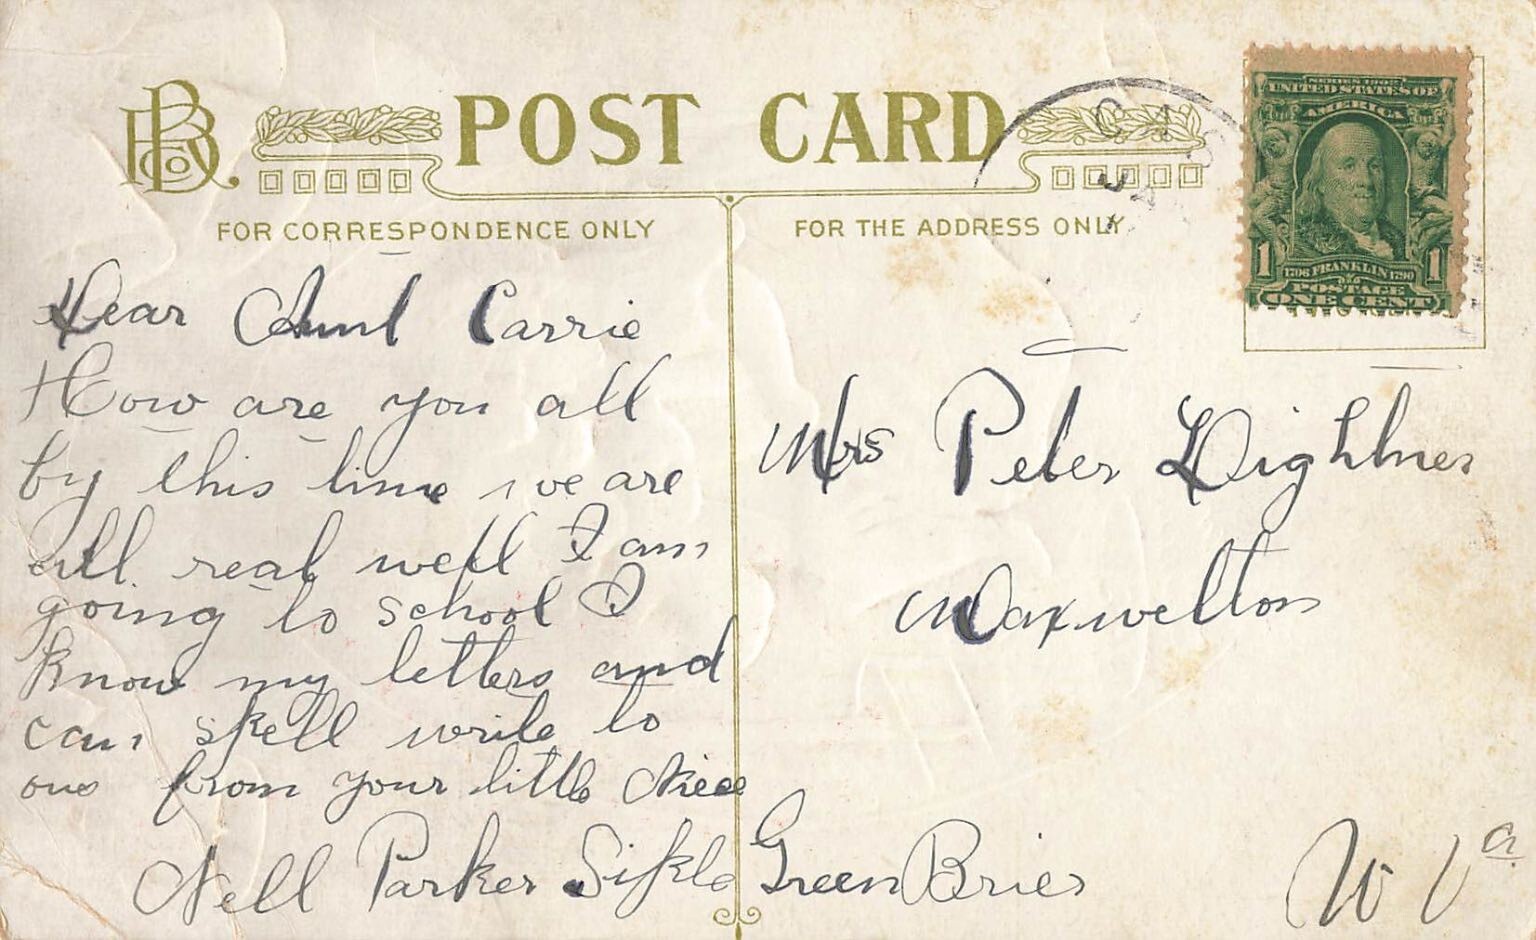 POST CARD
FOR CORRESPONDENCE ONLY
FOR THE ADDRESS ONLY
Dear Aunt Carrie
How are you all
by this time we are
all real well I am
going to school I
know my letters and
can spell write to
ous from your little Niece
Nell Parker
SERIES 1902
UNITED STATES OF
AMERICA
1 1706 FRANKLIN 1790 1
POSTAGE
ONE CENT
Mrs Peter Lightner
Maxwelton
Green Brier W Va